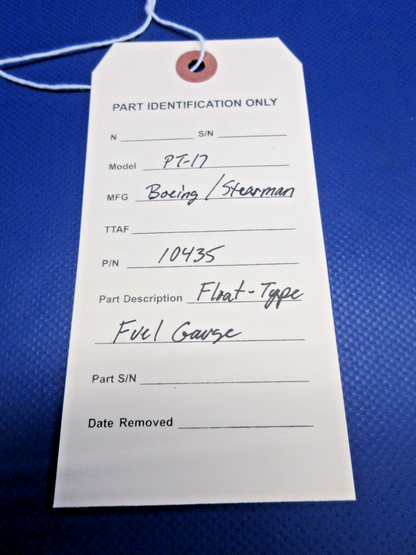 PART IDENTIFICATION ONLY
N ______ S/N ______
Model PT-17
MFG Boeing / Stearman
TTAF ______
P/N 10435
Part Description Float-Type
Fuel Gauge
Part S/N ______
Date Removed ______